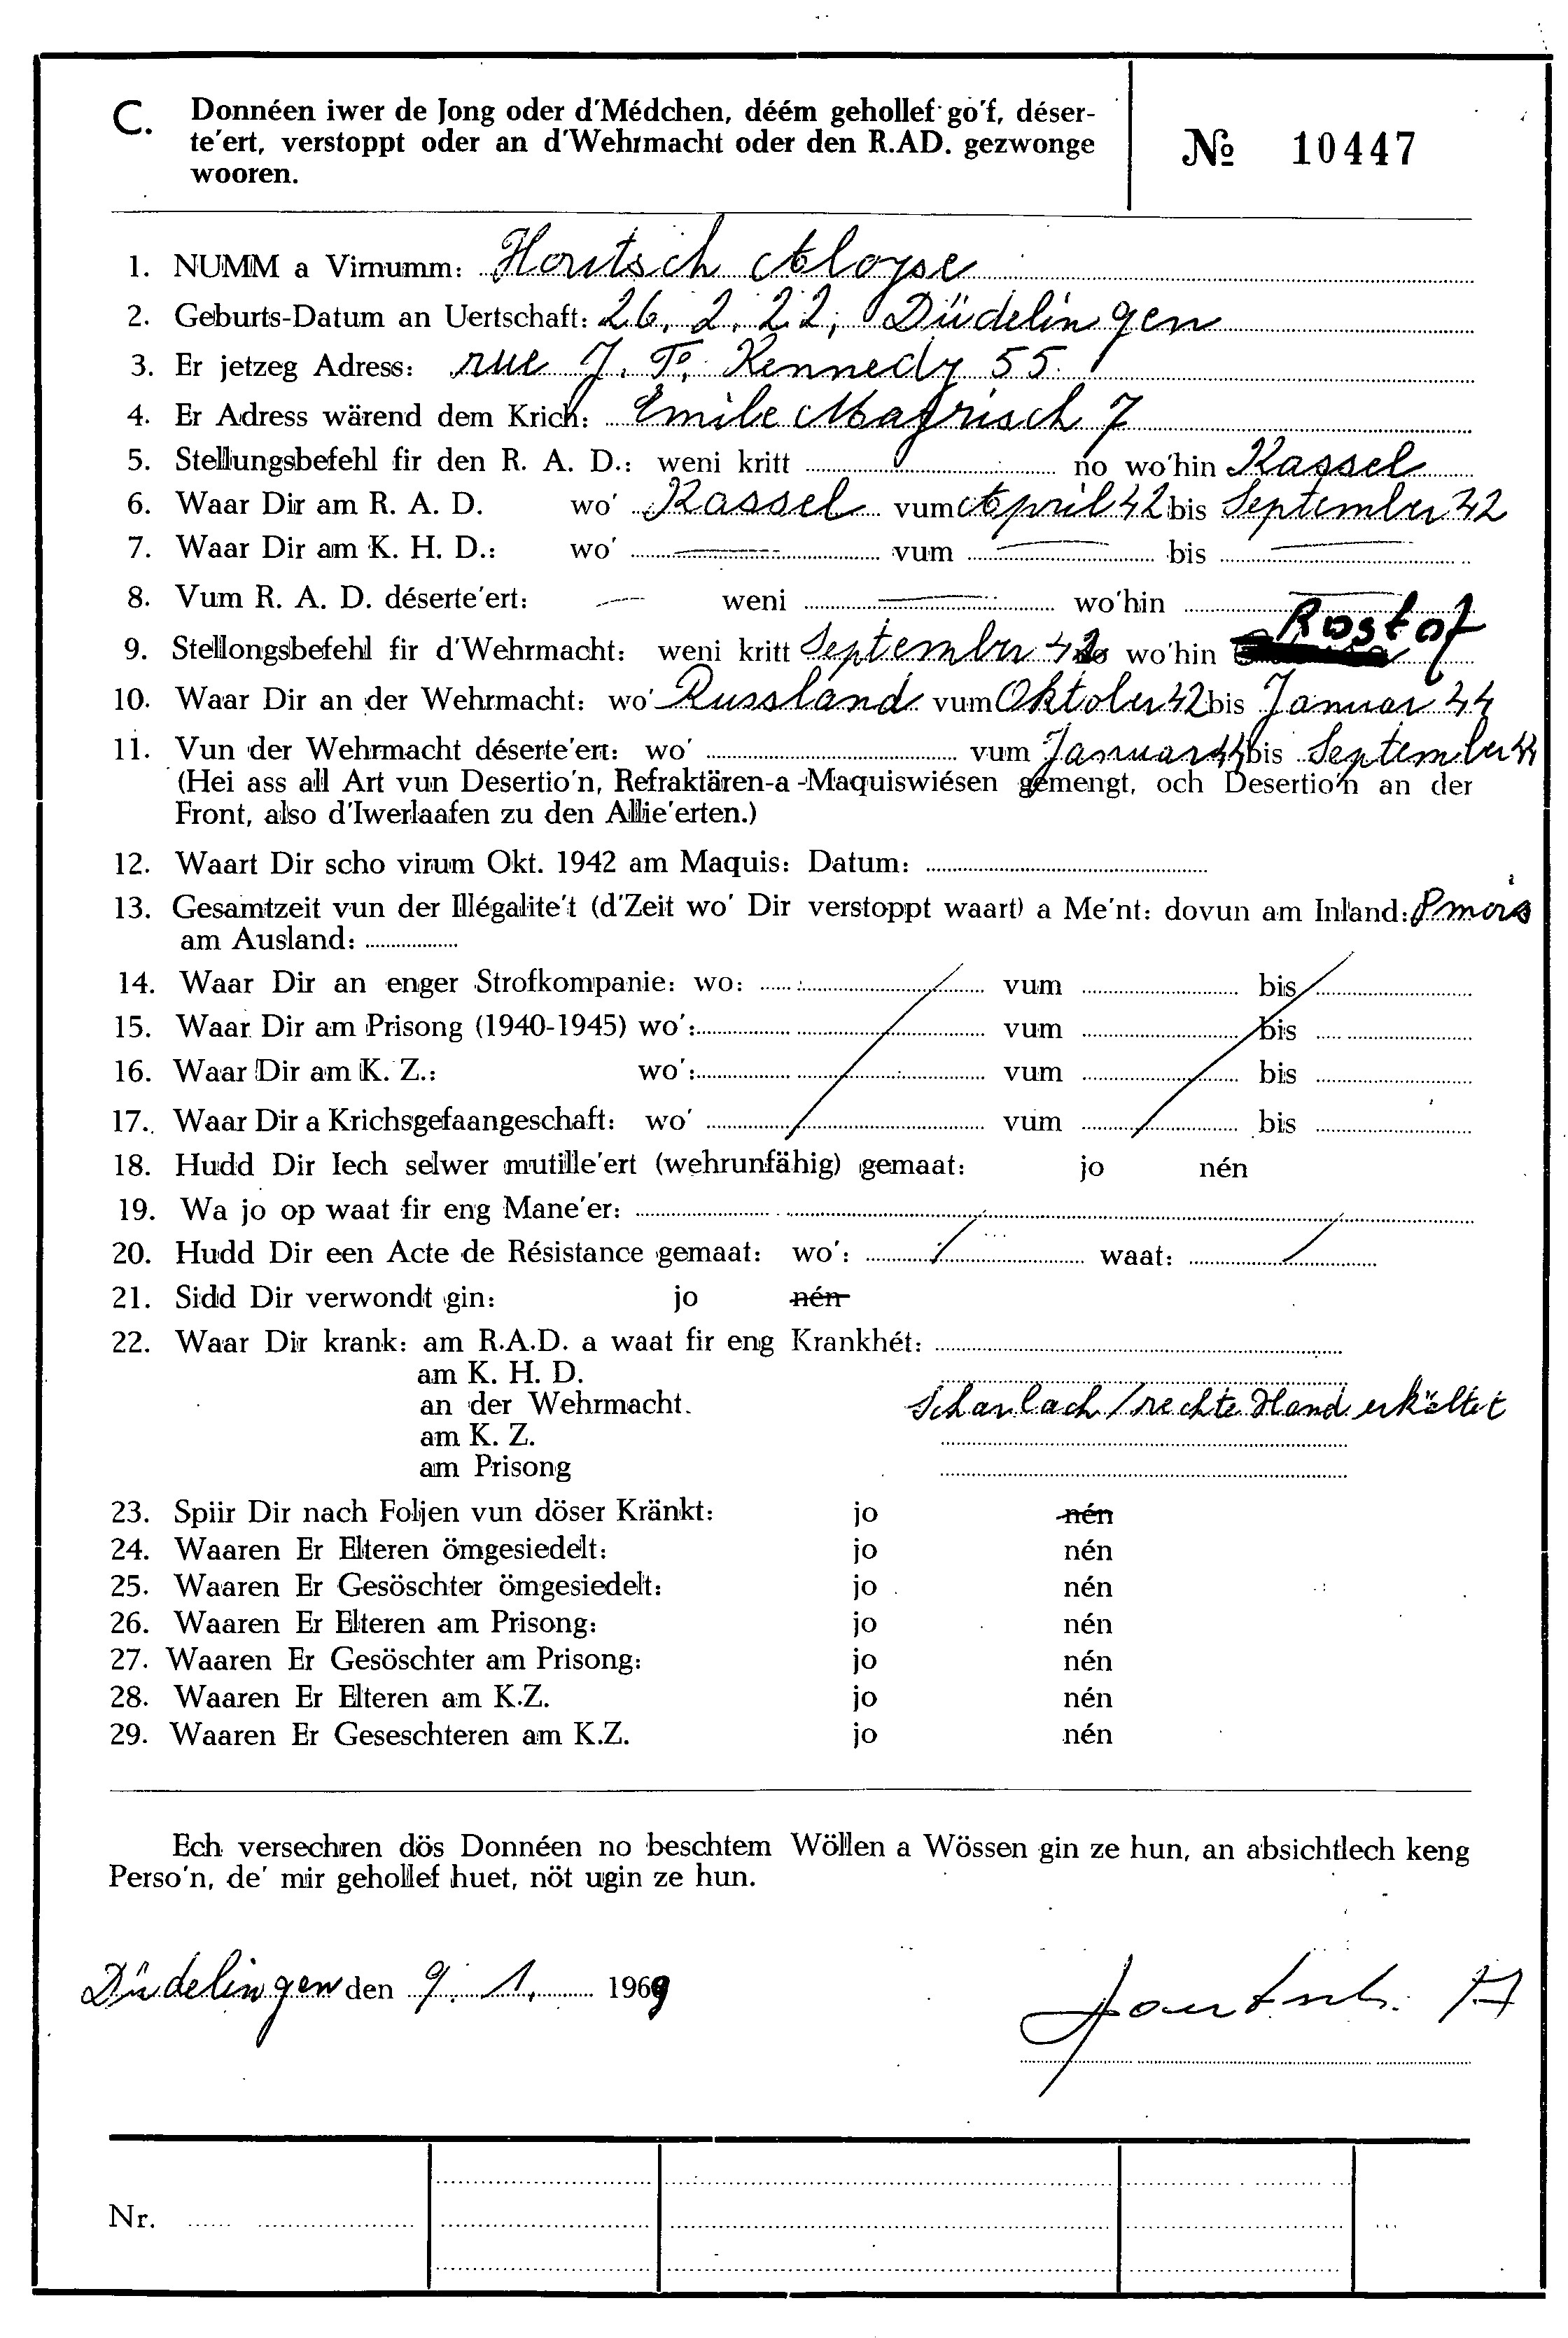 C. Donnéen iwer de Jong oder d'Médchen, déém gehollef go'f, déser-
te'ert, verstoppt oder an d'Wehrmacht oder den R.AD. gezwonge
wooren.
№ 10447
1. NUMM a Virnumm: Houtsch Aloyse
2. Geburts-Datum an Uertschaft: 26. 2. 22, Düdelingen
3. Er jetzeg Adress: rue J. F. Kennedy 55
4. Er Adress wärend dem Krich: Emile Mayrisch 7
5. Stellungsbefehl fir den R. A. D.: weni kritt no wo'hin Kassel
6. Waar Dir am R. A. D. wo' Kassel vum April 42 bis September 42
7. Waar Dir am K. H. D.: wo' — vum — bis —
8. Vum R. A. D. déserte'ert: — weni — wo'hin —
9. Stellongsbefehl fir d'Wehrmacht: weni kritt September 42 no wo'hin Rostof
10. Waar Dir an der Wehrmacht: wo' Russland vum Oktober 42 bis Januar 44
11. Vun der Wehrmacht déserte'ert: wo' vum Januar 44 bis September 44
(Hei ass all Art vun Desertio'n, Refraktären-a -Maquiswiésen gemengt, och Desertio'n an der
Front, also d'Iwerlaafen zu den Allie'erten.)
12. Waart Dir scho virum Okt. 1942 am Maquis: Datum:
13. Gesamtzeit vun der Illégalite't (d'Zeit wo' Dir verstoppt waart) a Me'nt: dovun am Inland: 8 mois
am Ausland:
14. Waar Dir an enger Strofkompanie: wo: vum bis
15. Waar Dir am Prisong (1940-1945) wo': vum bis
16. Waar Dir am K. Z.: wo': vum bis
17. Waar Dir a Krichsgefaangeschaft: wo' vum bis
18. Hudd Dir Iech selwer mutille'ert (wehrunfähig) gemaat: jo nén
19. Wa jo op waat fir eng Mane'er:
20. Hudd Dir een Acte de Résistance gemaat: wo': / waat: /
21. Sidd Dir verwondt gin: jo nén
22. Waar Dir krank: am R.A.D. a waat fir eng Krankhét:
am K. H. D.
an der Wehrmacht. Scharlach / rechte Hand erkältet
am K. Z.
am Prisong
23. Spiir Dir nach Foljen vun döser Kränkt: jo nén
24. Waaren Er Elteren ömgesiedelt: jo nén
25. Waaren Er Gesöschter ömgesiedelt: jo nén
26. Waaren Er Elteren am Prisong: jo nén
27. Waaren Er Gesöschter am Prisong: jo nén
28. Waaren Er Elteren am K.Z. jo nén
29. Waaren Er Geseschteren am K.Z. jo nén
Ech versechren dös Donnéen no beschtem Wöllen a Wössen gin ze hun, an absichtlech keng
Perso'n, de' mir gehollef huet, nöt ugin ze hun.
Düdelingen den 9. 1. 1969
Nr.